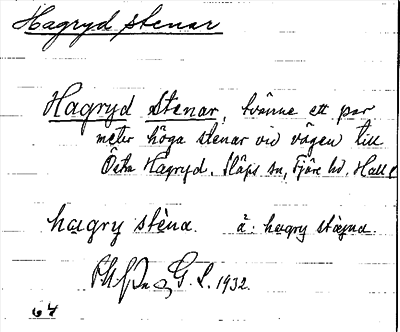 Hagryd stenar
Hagryd stenar, tvänne ett par
meter höga stenar vid vägen till
Östra Hagryd. Släps sn, Fjäre hd, Hall
hagry stèna. ä. hagry stægna.
G. S. 1932.
64